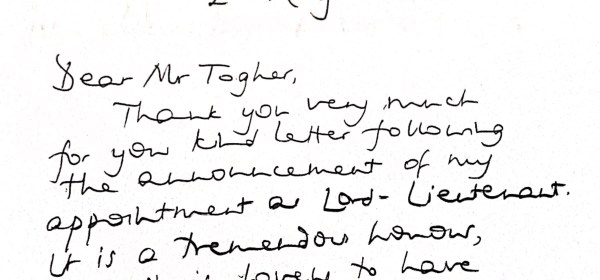 Dear Mr Togher,
Thank you very much
for your kind letter following
the announcement of my
appointment as Lord-Lieutenant.
It is a tremendous honour,
lovely to have